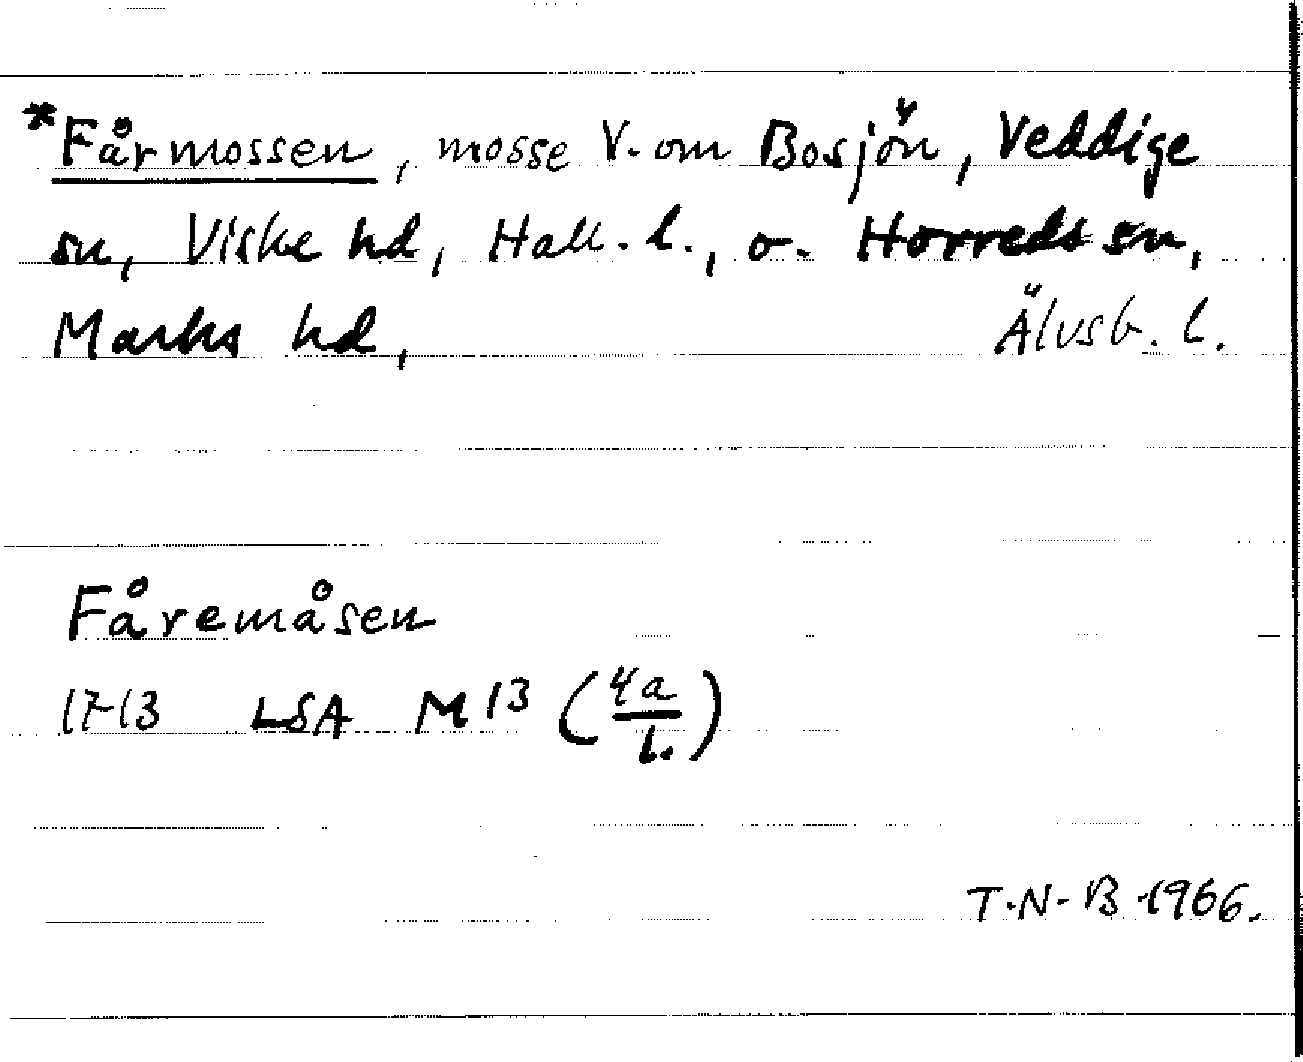 *Fårmossen, mosse V. om Bosjön, Veddige
sn, Viske hd, Hall. l., o. Horreds sn,
Marks hd, Älvsb. l.
Fåremåsen
1713 LSA M13 (4a/1.)
T.N-B 1966.